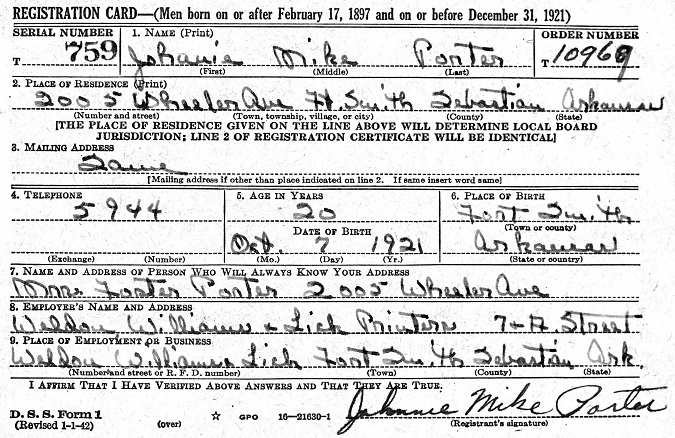 REGISTRATION CARD—(Men born on or after February 17, 1897 and on or before December 31, 1921)
SERIAL NUMBER 1. NAME (Print) ORDER NUMBER
T 759 Johnnie Mike Porter T 10969
(First) (Middle) (Last)
2. PLACE OF RESIDENCE (Print)
2005 Wheeler Ave Ft. Smith Sebastian Arkansas
(Number and street) (Town, township, village, or city) (County) (State)
[THE PLACE OF RESIDENCE GIVEN ON THE LINE ABOVE WILL DETERMINE LOCAL BOARD
JURISDICTION; LINE 2 OF REGISTRATION CERTIFICATE WILL BE IDENTICAL]
3. MAILING ADDRESS
Same
[Mailing address if other than place indicated on line 2. If same insert word same]
4. TELEPHONE 5. AGE IN YEARS 6. PLACE OF BIRTH
5944 20 Fort Smith
DATE OF BIRTH (Town or county)
Oct. 7 1921 Arkansas
(Exchange) (Number) (Mo.) (Day) (Yr.) (State or country)
7. NAME AND ADDRESS OF PERSON WHO WILL ALWAYS KNOW YOUR ADDRESS
Mrs. Foster Porter 2005 Wheeler Ave
8. EMPLOYER'S NAME AND ADDRESS
Weldon Williams & Lick Printers 7 + A. Street
9. PLACE OF EMPLOYMENT OR BUSINESS
Weldon Williams & Lick Fort Smith Sebastian Ark.
(Number and street or R. F. D. number) (Town) (County) (State)
I AFFIRM THAT I HAVE VERIFIED ABOVE ANSWERS AND THAT THEY ARE TRUE.
Johnnie Mike Porter
D. S. S. Form 1
(Revised 1-1-42) (over) ☆ GPO 16—21630-1 (Registrant's signature)